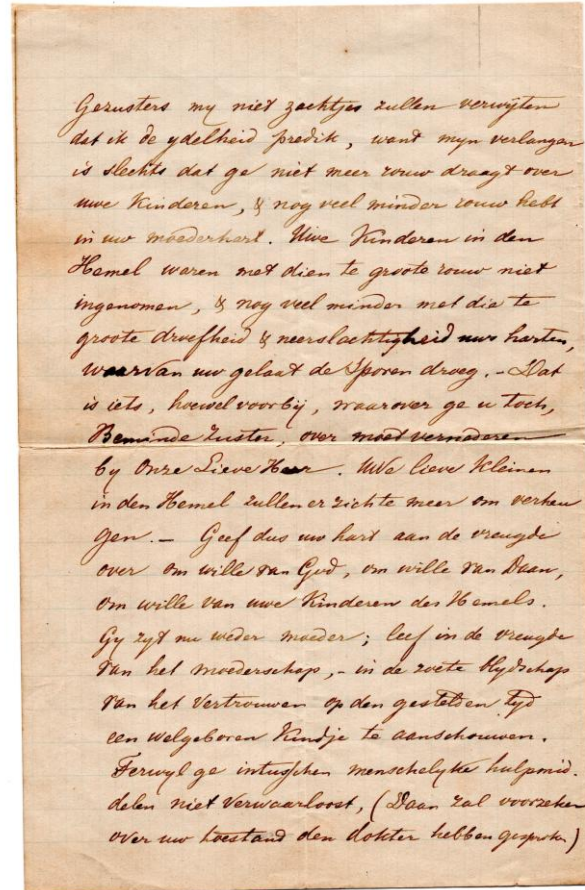 Gezusters my niet zachtjes zullen verwyten
dat ik de ydelheid predik, want myn verlangen
is slechts dat ge niet meer rouw draagt over
uwe Kinderen, & nog veel minder rouw hebt
in uw moederhart. Uwe Kinderen in den
Hemel waren met dien te groote rouw niet
ingenomen, & nog veel minder met die te
groote droefheid & neerslachtigheid uws harten,
waarvan uw gelaat de Sporen droeg. - Dat
is iets, hoewel voorbij, waarover ge u toch,
Beminde Zuster, over moet vernederen
by Onze Lieve Heer. Uwe lieve Kleinen
in den Hemel zullen er zich te meer om verheu
gen. - Geef dus uw hart aan de vreugde
over om wille van God, om wille van Daan,
om wille van uwe Kinderen des Hemels.
Gy zyt nu weder moeder; leef in de vreugde
van het moederschap, - in de zoete blydschap
van het Vertrouwen op den gestelden tyd
een welgeboren Kindje te aanschouwen.
Terwyl ge intusschen menschelyke hulpmid-
delen niet verwaarloost, (Daan zal voorzeker
over uw toestand den dokter hebben gesproken)